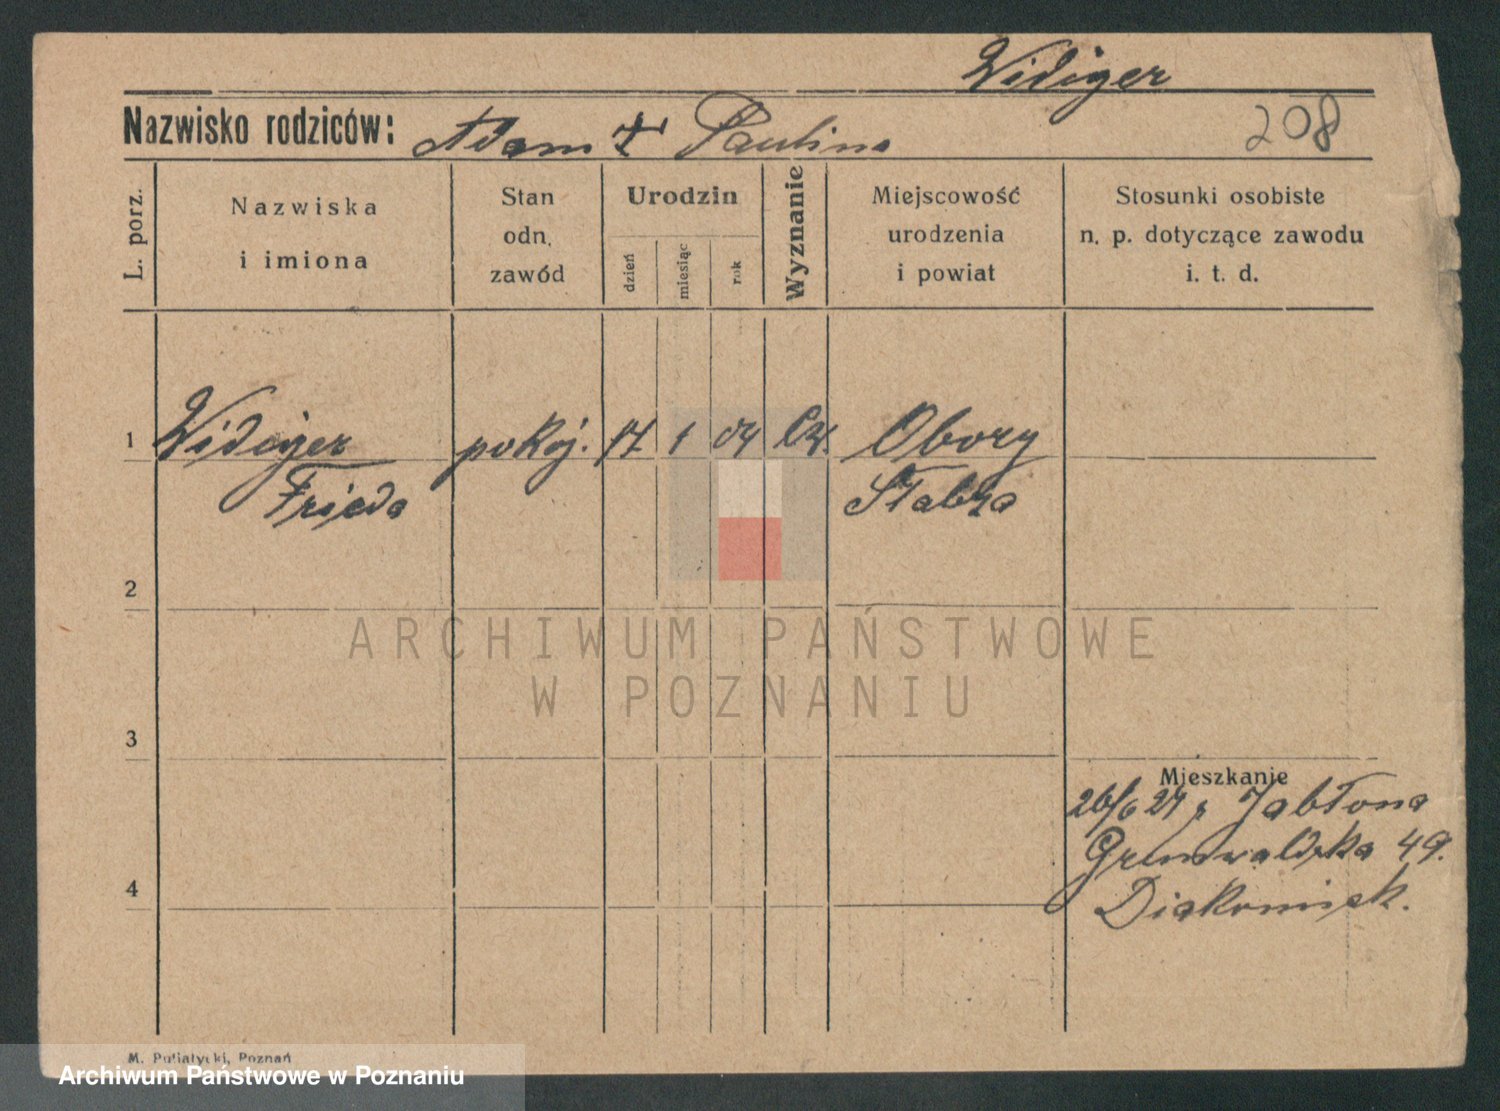 Widiger
Nazwisko rodziców: Adam + Paulina
208
L. porz.
Nazwiska
i imiona
Stan
odn.
zawód
Urodzin
dzień
miesiąc
rok
Wyznanie
Miejscowość
urodzenia
i powiat
Stosunki osobiste
n. p. dotyczące zawodu
i. t. d.
1 Widiger pokoj. 17 1 04 Ew. Obory
Frieda
2
3
Mieszkanie
Jabłona
Grunwaldzka 49.
4
ARCHIWUM PAŃSTWOWE
W POZNANIU
M. Putiatycki, Poznań
Archiwum Państwowe w Poznaniu